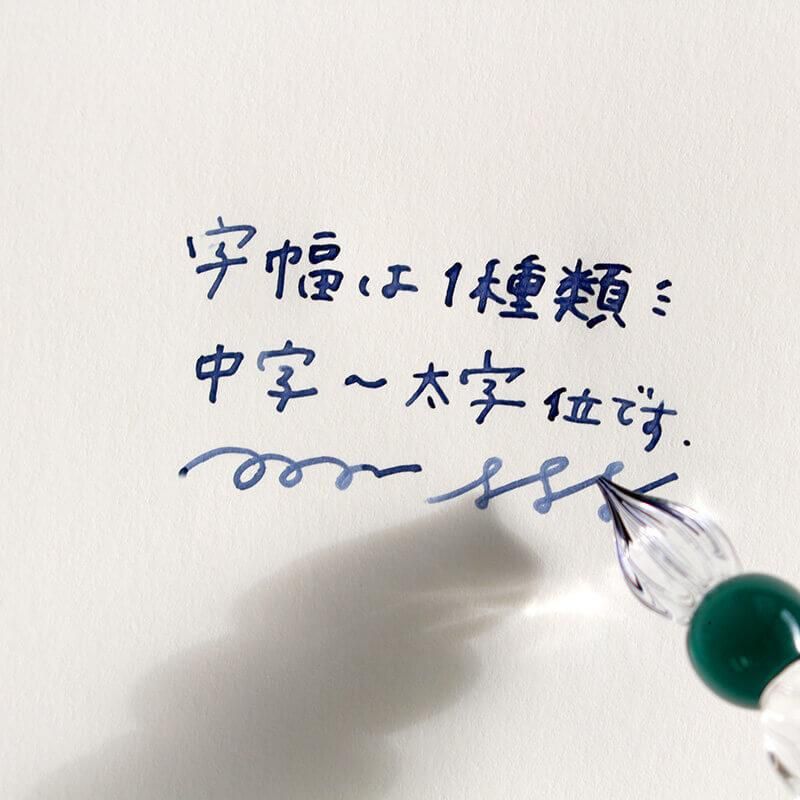 字幅は1種類
中字〜太字位です.